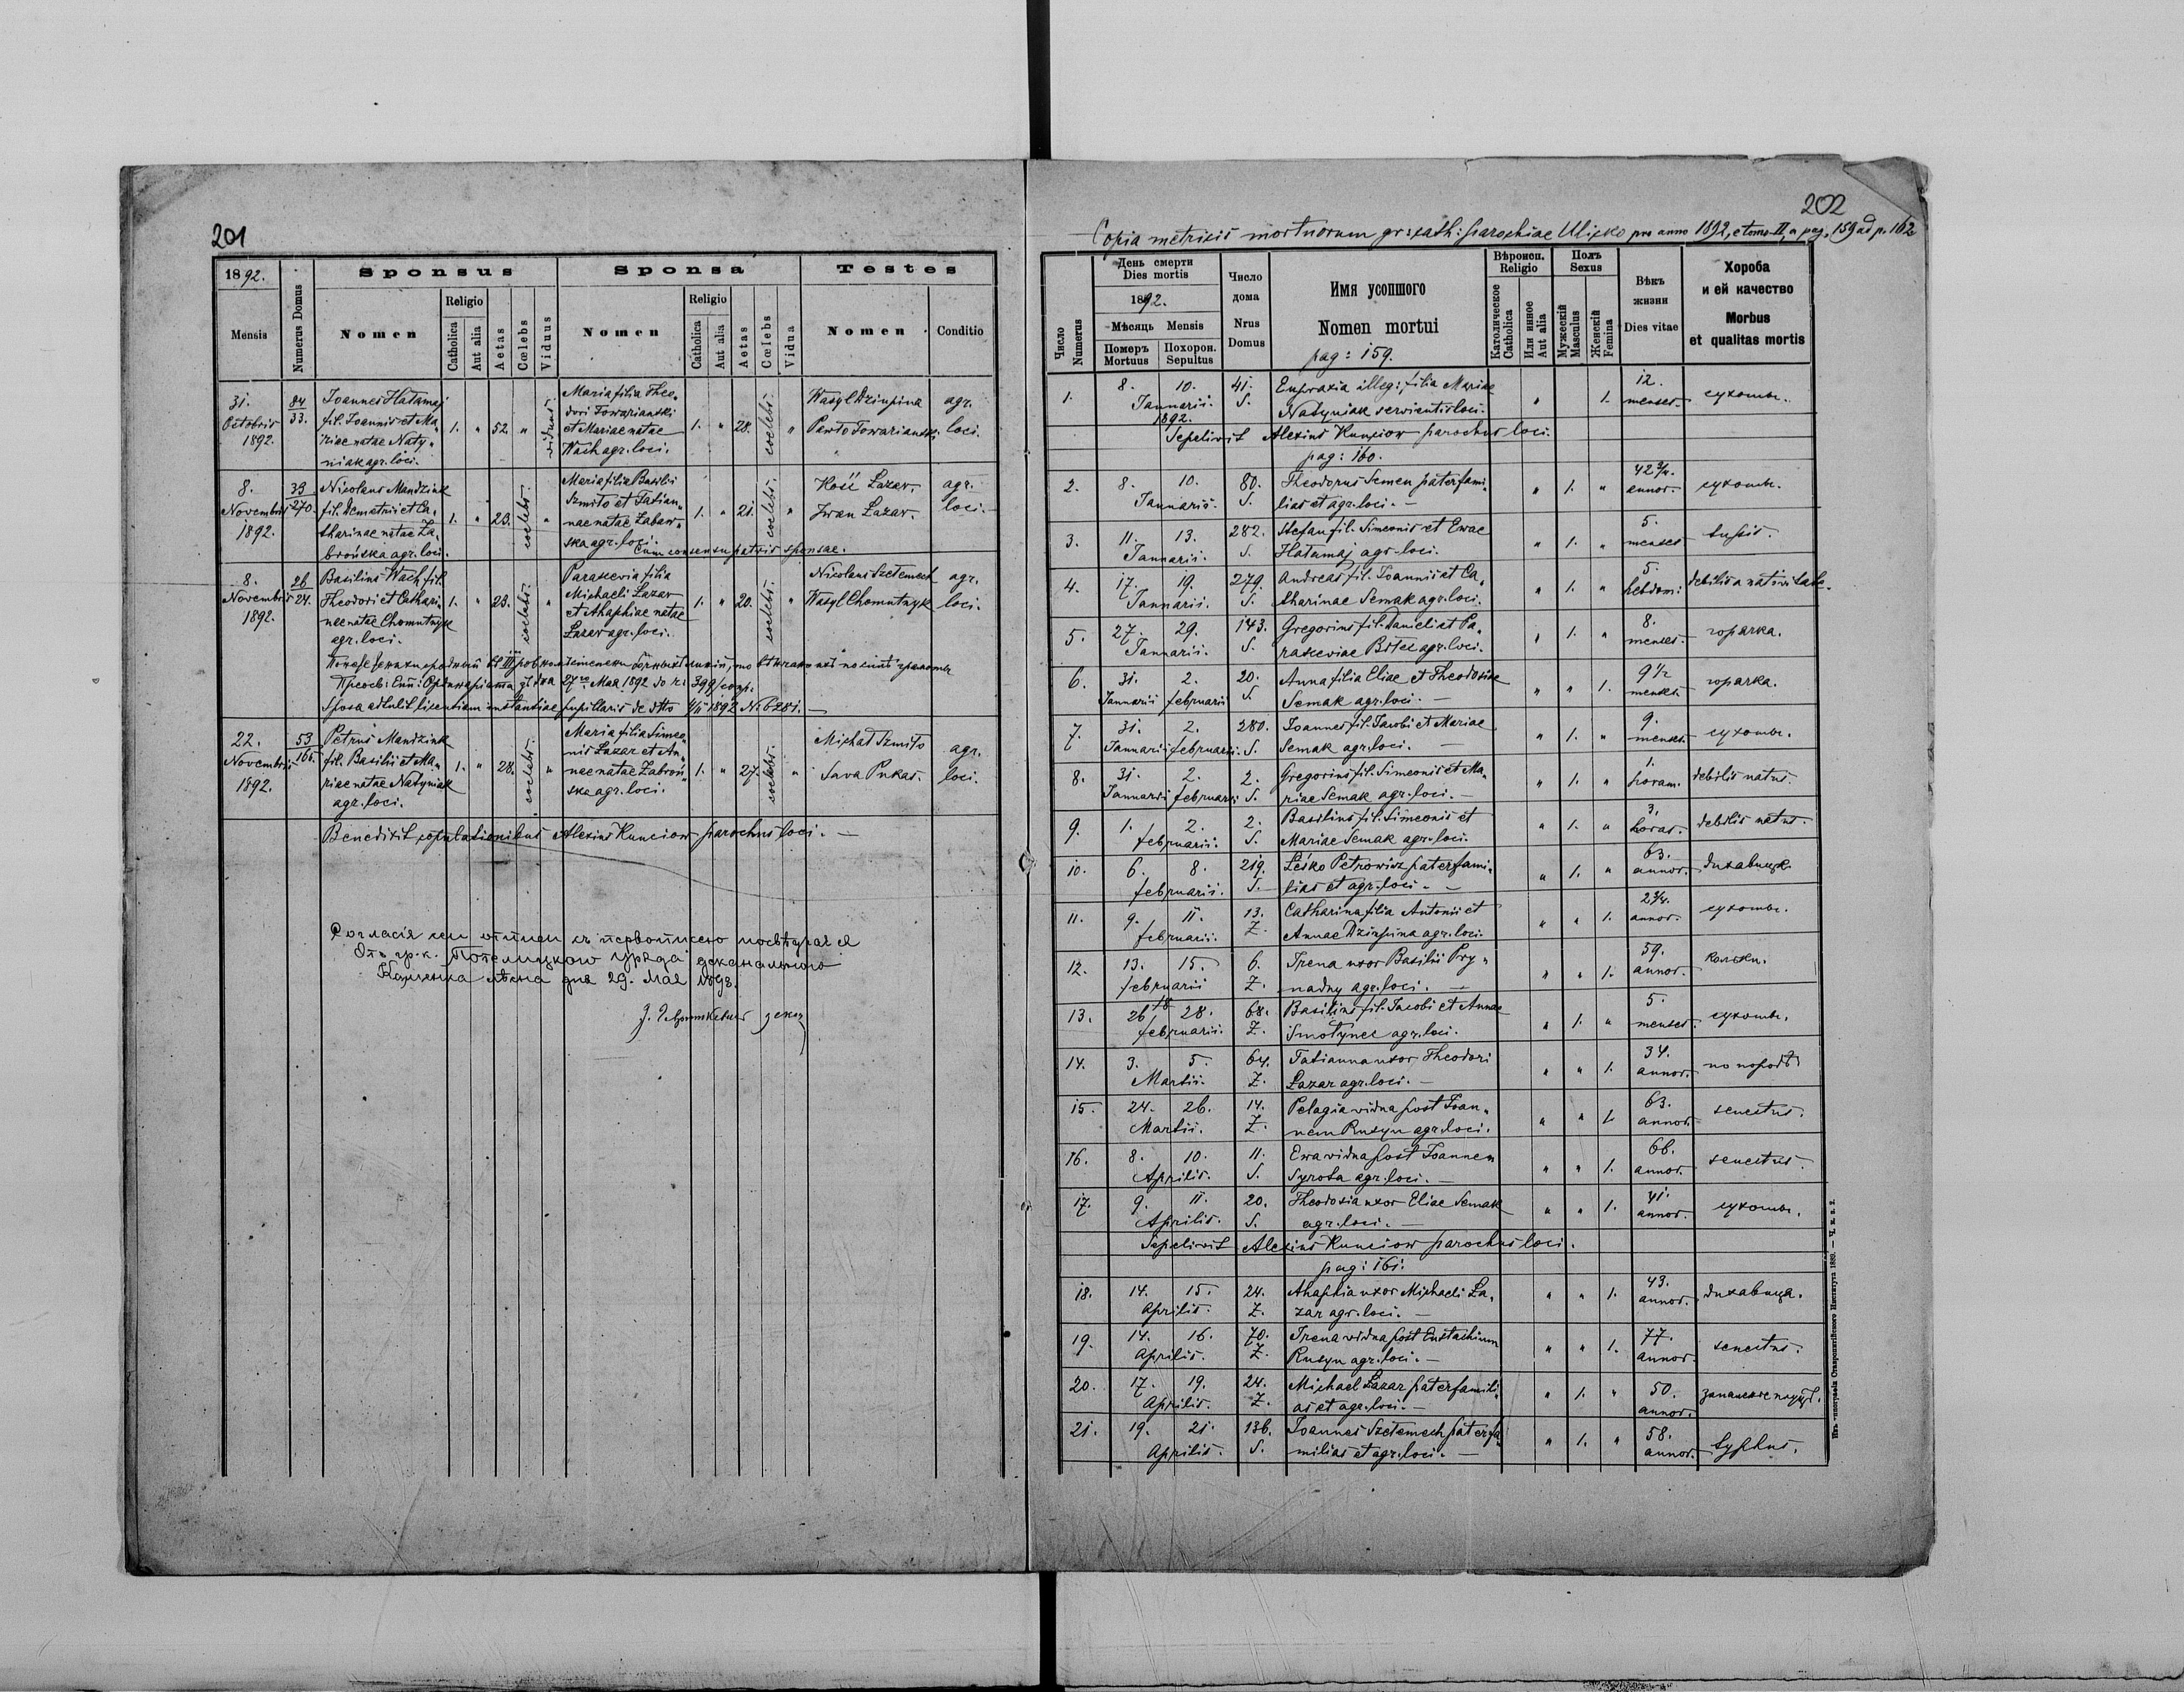 201
1892.
Mensis
Numerus Domus
Sponsus
Nomen
Religio
Catholica
Aut alia
Aetas
Cœlebs
Viduus
Sponsa
Nomen
Religio
Catholica
Aut alia
Aetas
Cœlebs
Vidua
Testes
Nomen
Conditio
31. Octobris 1892.
84/33.
Joannes Hatamaj
fil. Joannis et Ma„
riae natae Naty„
niak agr. loci.
1. " 52. " viduus.
Maria filia Theo„
dori Towarianski
et Mariae natae
Wach agr. loci.
1. " 28. coelebs. "
Wasyl Dziupina
Pawło Towarianski.
agr.
loci.
8. Novembris 1892.
39/270.
Nicolaus Mandziuk
fil. Demetrii et Ca„
tharinae natae Za„
brońska agr. loci.
1. " 23. coelebs. "
Maria filia Basilii
Szmiło et Tatian„
nae natae Zabaw„
ska agr. loci.
Cum consensu patris sponsae.
1. " 21. coelebs. "
Kość Lazar.
Iwan Lazar.
agr.
loci.
8. Novembris 1892.
26/24.
Basilius Wach fil.
Theodori et Cathari„
nae natae Chomutnyk
agr. loci.
1. " 23. coelebs. "
Parascevia filia
Michaeli Lazar
et Ahaphiae natae
Lazar agr. loci.
1. " 20. coelebs. "
Nicolaus Szetemech
Wasyl Chomutnyk
agr.
loci.
27го Мая 1892 до ч. 399/
Sponsa adtulit licentiam instantiae pupillaris de dtto 1892 № 6281.
22. Novembris 1892.
53/165.
Petrus Mandziuk
fil. Basilii et Ma„
riae natae Natyniak
agr. loci.
1. " 28. coelebs. "
Maria filia Simeo„
nis Lazar et An„
nae natae Zabroń„
ska agr. loci.
1. " 27. coelebs. "
Michał Szmiło
Sava Pukas.
agr.
loci.
Benedixit copulationibus Alexius Kunciow parochus loci.
Согласіе сеи отписи съ первописею посвѣдчає ся
Отъ гр.к. Потелицкого уряда деканального
дня 29. Мая 1893.
202
Copia metricis mortuorum gr: cath: parochiae Ulicko pro anno 1892, e tomo II, a pag. 159 ad p. 162
Число
Numerus
День смерти
Dies mortis
1892.
Мѣсяць Mensis
Померъ
Mortuus
Похорон.
Sepultus
Число
дома
Nrus
Domus
Имя усопшого
Nomen mortui
pag: 159.
Вѣроисп.
Religio
Католическое
Catholica
Или инное
Aut alia
Полъ
Sexus
Мужескій
Masculus
Женскій
Femina
Вѣкъ
жизни
Dies vitae
Хороба
и ей качество
Morbus
et qualitas mortis
1. 8. 10. Januarii. 1892. 41. S.
Euphraxia illeg: filia Mariae
Natyniak servientis loci.
" 1. 12. menses. сухоты.
Sepelivit Alexius Kunciow parochus loci.
pag: 160.
2. 8. 10. Januarii. 80. S.
Theodorus Semen paterfami„
lias et agr. loci.
" 1. " 42 3/4. annos. сухоты.
3. 11. 13. Januarii. 282. S.
Stefan fil. Simeonis et Ewae
Hatamaj agr. loci.
" 1. " 5. menses tussis.
4. 17. 19. Januarii. 279. S.
Andreas fil. Joannis et Ca„
tharinae Semak agr. loci.
" 1. " 5. hebdom: debilis a nativitate.
5. 27. 29. Januarii. 143. S.
Gregorius fil. Danieli et Pa„
rasceviae Bitec agr. loci.
" 1. " 8. menses. горячка.
6. 31. 2. Januarii februarii 20. S.
Anna filia Eliae et Theodosiae
Semak agr. loci.
" " 1. 9 1/2 menses. горячка.
7. 31. 2. Januarii februarii. 280. S.
Joannes fil. Jacobi et Mariae
Semak agr. loci.
" 1. " 9. menses. сухоты.
8. 31. 2. Januarii februarii 2. S.
Gregorius fil. Simeonis et Ma„
riae Semak agr. loci.
" 1. " 1. horam. debilis natus.
9. 1. 2. februarii. 2. S.
Basilius fil. Simeonis et
Mariae Semak agr. loci.
" 1. " 3. horas. debilis natus.
10. 6. 8. februarii. 219. S.
Leśko Petrowicz paterfami„
lias et agr. loci.
" 1. " 63. annos. дихавиця.
11. 9. 11. februarii. 13. Z.
Catharina filia Antonii et
Annae Dziupina agr. loci.
" " 1. 2 3/4. annos. сухоты.
12. 13. 15. februarii 6. Z.
Irena uxor Basilii Pry„
nadny agr. loci.
" " 1. 59. annos. кольки.
13. 26 28. februarii. 68. Z.
Basilius fil. Jacobi et Annae
Smotynec agr. loci.
" 1. " 5. menses. сухоты.
14. 3. 5. Martii. 64. Z.
Tatianna uxor Theodori
Lazar agr. loci.
" " 1. 34. annos. по породѣ
15. 24. 26. Martii. 14. Z.
Pelagia vidua post Joan„
nem Rusyn agr. loci.
" " 1. 63. annos. senectus.
16. 8. 10. Aprilis. 11. S.
Ewa vidua post Joannem
Syrota agr. loci.
" " 1. 66. annos. senectus.
17. 9. 11. Aprilis. 20. S.
Theodosia uxor Eliae Semak
agr. loci.
" " 1. 41. annos. сухоты.
Sepelivit Alexius Kunciow parochus loci.
pag: 161.
18. 14. 15. Aprilis. 24. Z.
Ahaphia uxor Michaeli La„
zar agr. loci.
" " 1. 43. annos. дихавиця.
19. 14. 16. Aprilis. 70. Z.
Irena vidua post Eustachium
Rusyn agr. loci.
" " 1. 77. annos. senectus.
20. 17. 19. Aprilis. 24. Z.
Michael Lazar paterfamili„
as et agr. loci.
" 1. " 50. annos.
21. 19. 21. Aprilis. 136. S.
Joannes Szetemech paterfa„
milias et agr. loci.
" 1. " 58. annos. typhus.
Изъ типографіи Ставропигійского Института 1889.